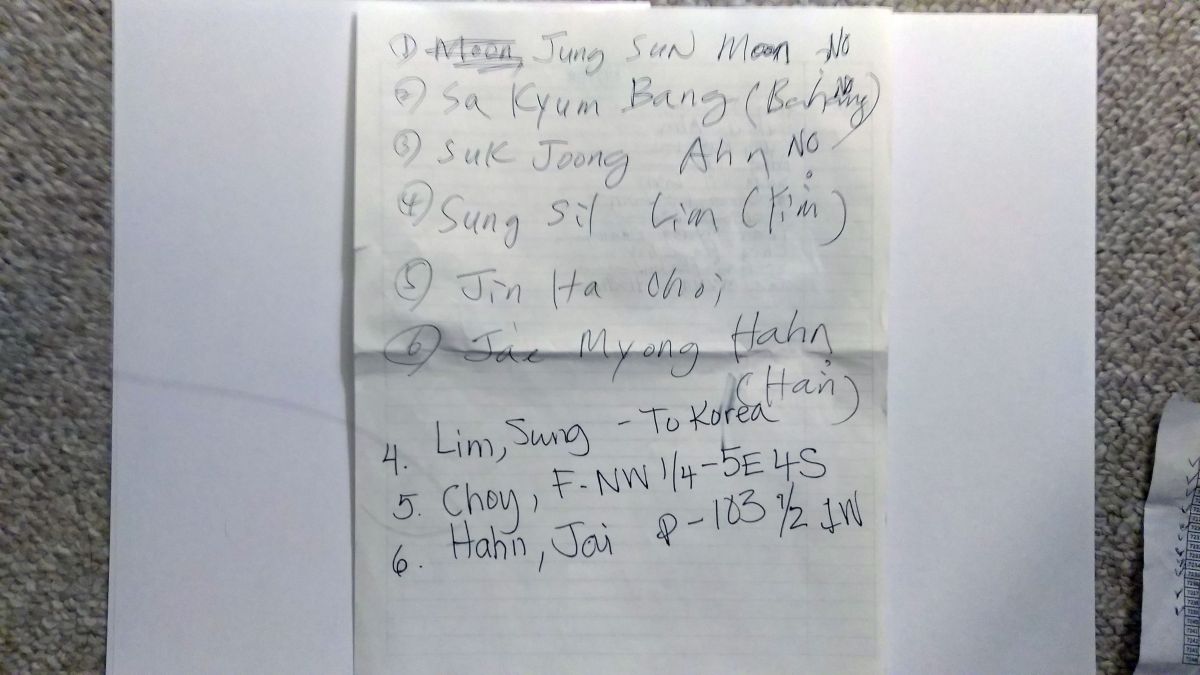 ① Moon, Jung Sun Moon No
② Sa Kyum Bang (Bahng) No
③ Suk Joong Ahn No
④ Sung Sil Lim (Kim)
⑤ Jin Ha Choi
⑥ Jae Myong Hahn
(Han)
4. Lim, Sung - To Korea
5. Choy, F-NW 1/4-5E 4S
6. Hahn, Jai P-103 1/2 1W